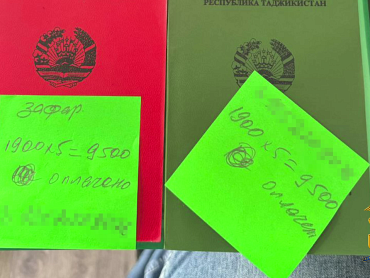 РЕСПУБЛИКА ТАДЖИКИСТАН
зафар
1900 x 5 = 9500
оплачено
1900 x 5 = 9500
оплачен